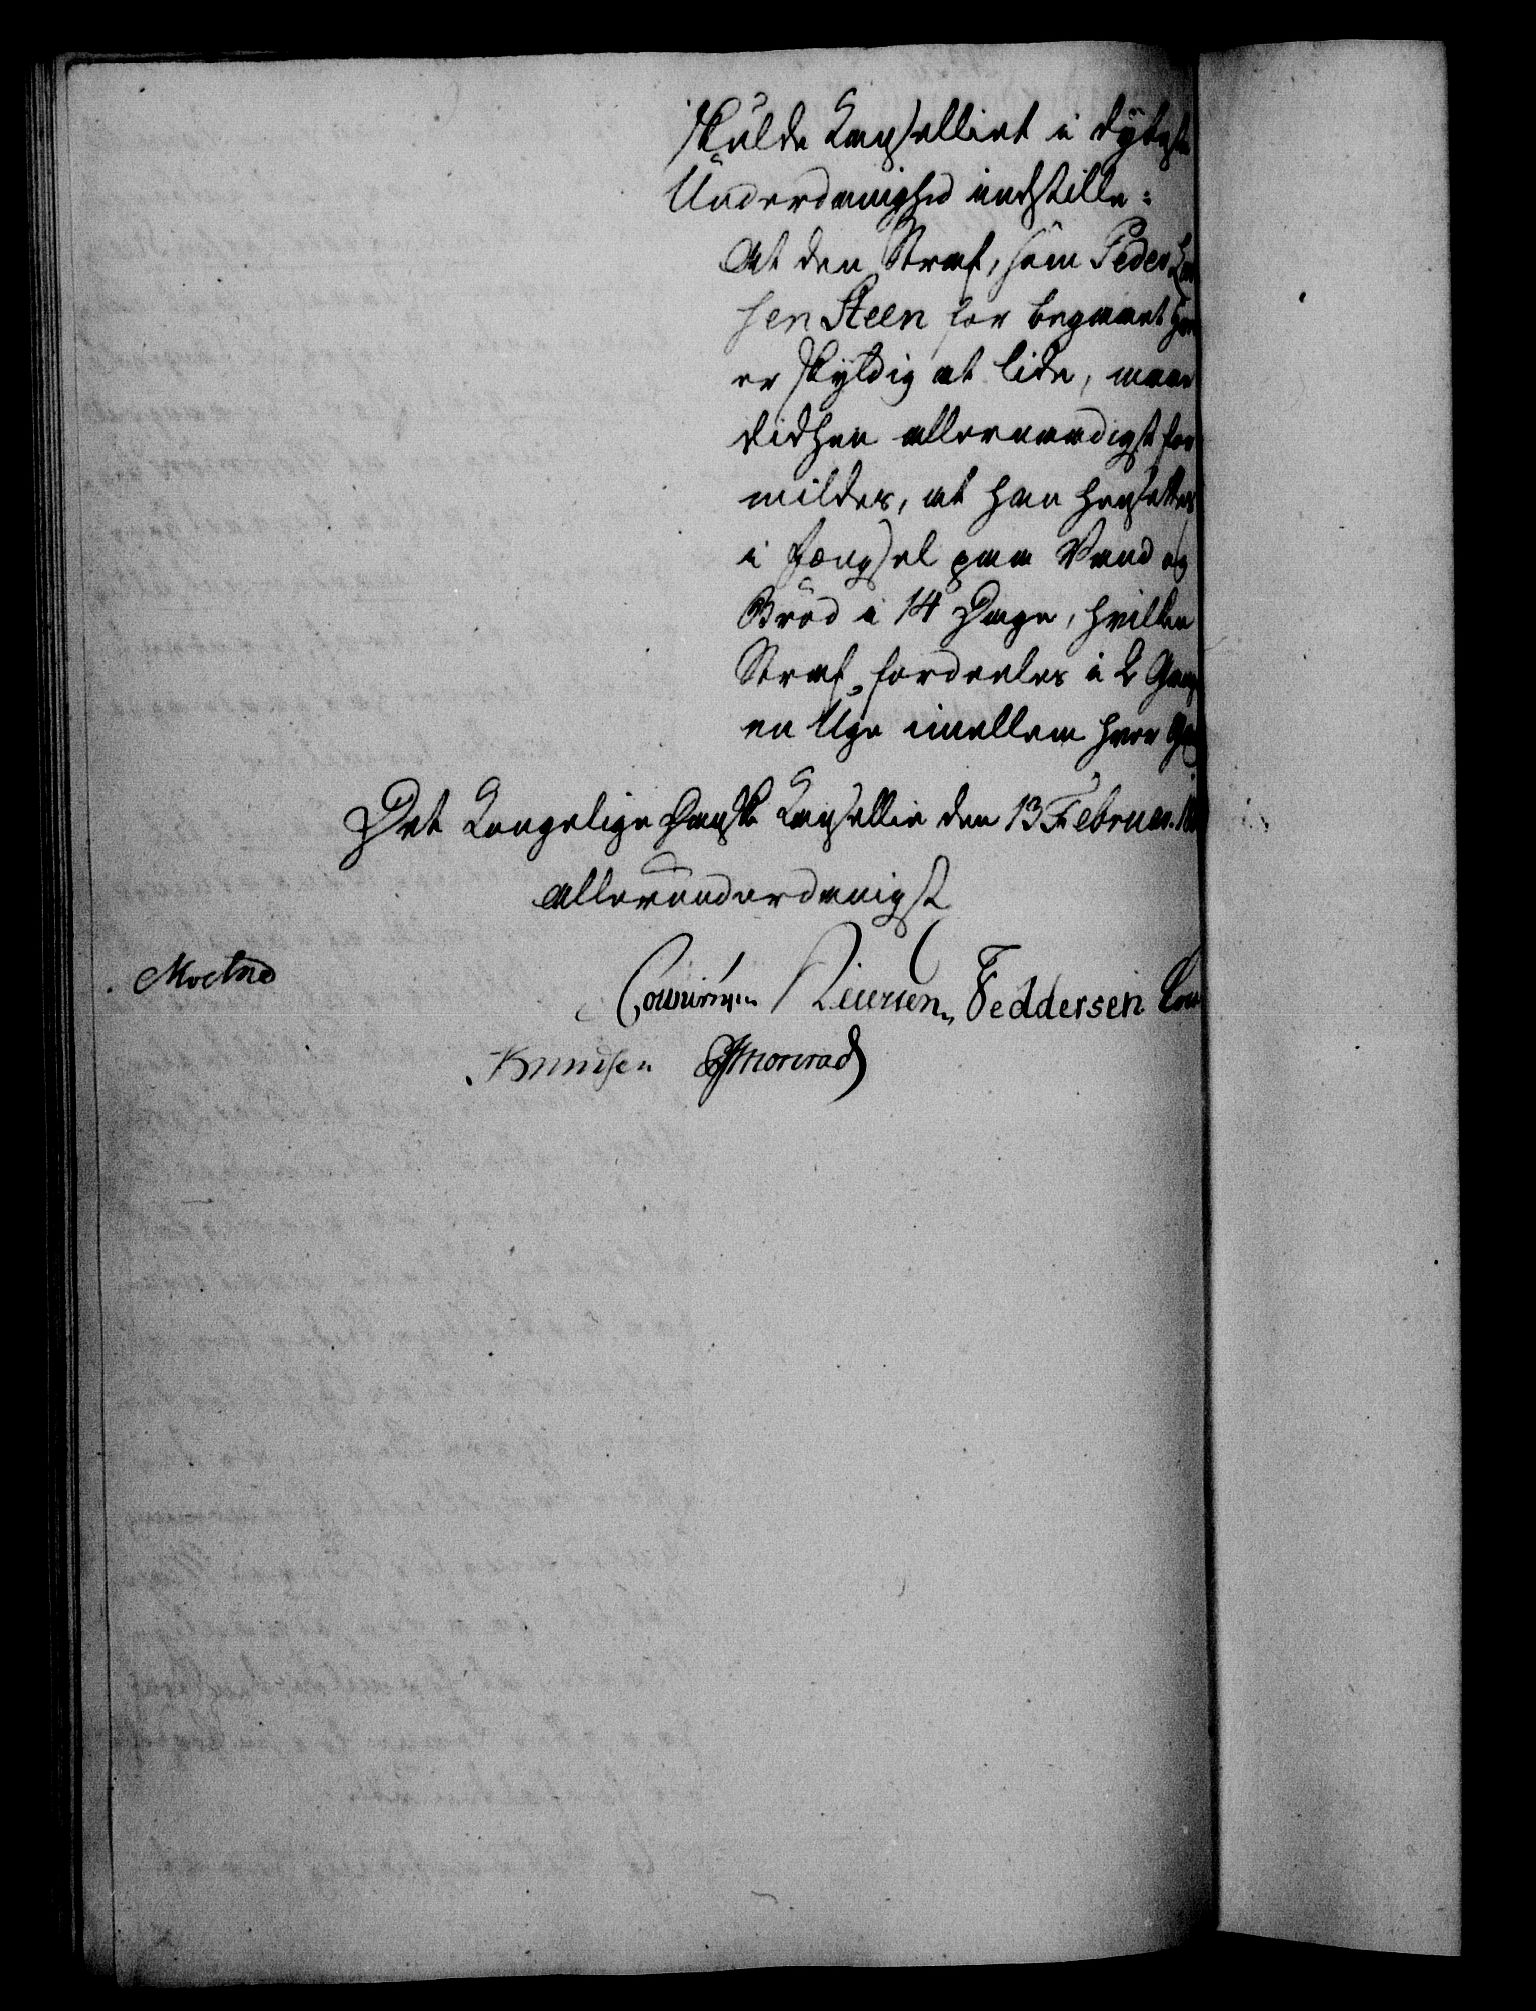 skulde Cancelliet i dybeste
Underdanighed indstille:
At den Straf, som Peder
sen Steen for begaaet
er skyldig at lide, maae
didhen allernaadigst for
mildes, at han hensættes
i Fængsel paa Vand og
Brød i 14 Dage, hvilken
Straf fordeeles i 2 Gange
en Uge imellem hver Gang
Det Kongelige Danske Cancellie den 13 Februar.
allerunderdanigst
Moltke
Cold Feddersen
Knudsen Monrad